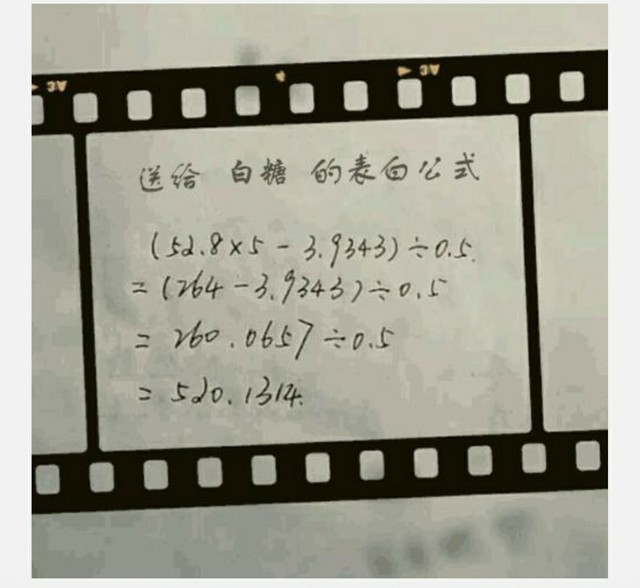 3A
3A
送给 白糖 的表白公式
(52.8×5-3.9343)÷0.5.
=(264-3.9343)÷0.5
=260.0657÷0.5
=520.1314.